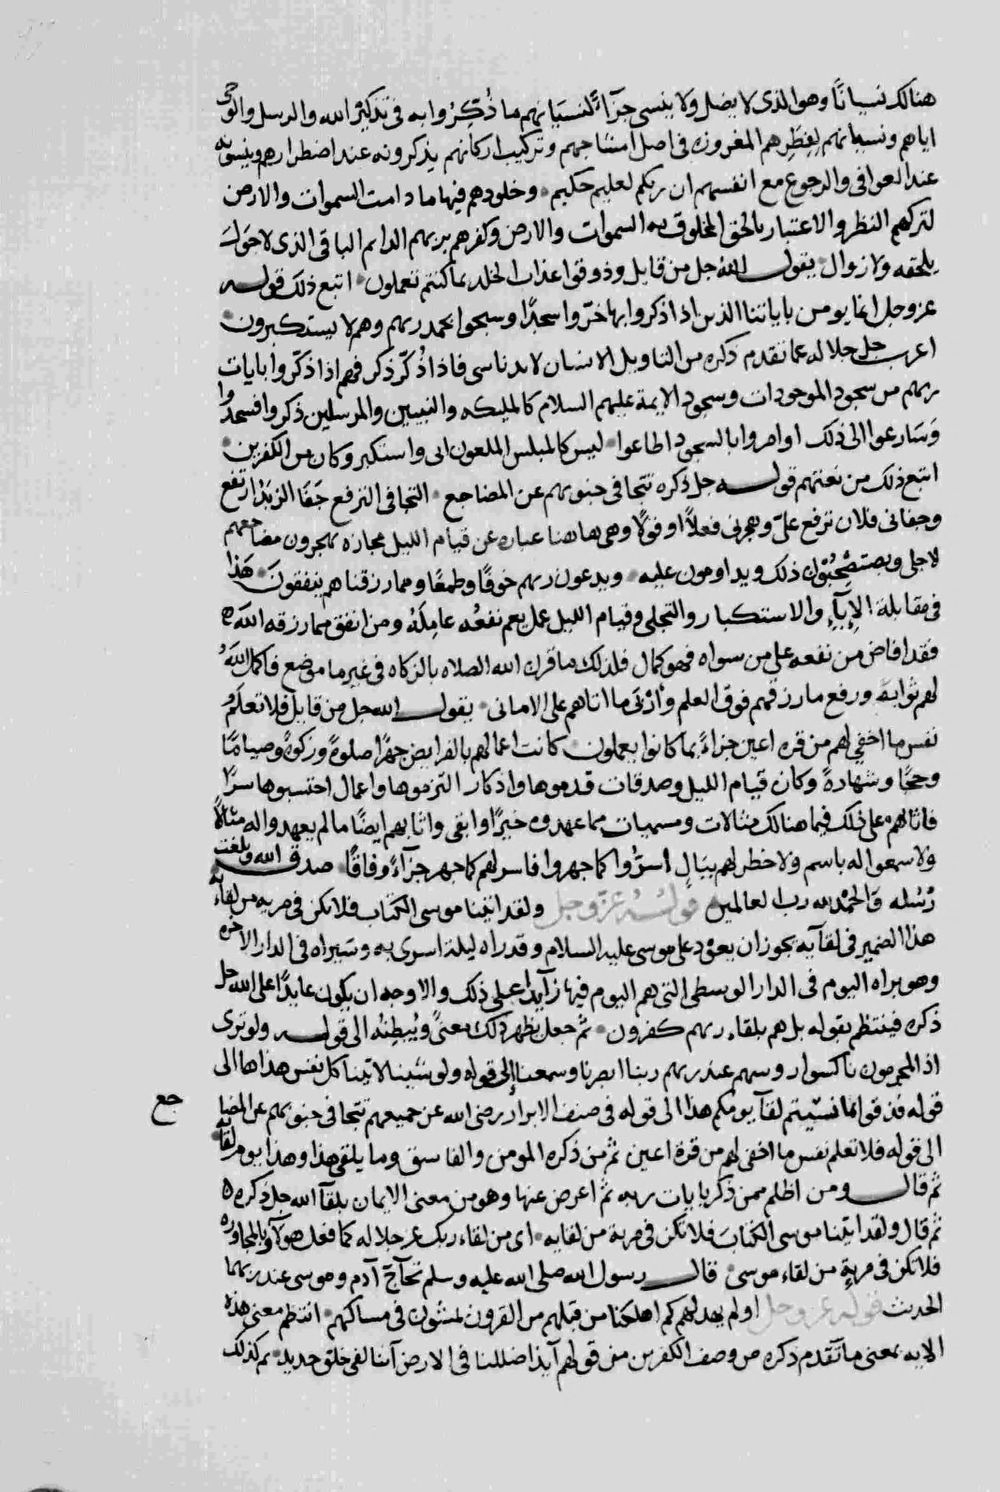 هنالك نسيانًا وهو الذى لا يضل ولا ينسى جزآءً لنسيانهم ما ذُكِّرُوا به فى تذكير الله والرسل والوحى
اياهم ونسيانهم لفِطَرِهم المغروزة فى اصل امشاجهم وتركيب اركانهم يذكرونه عند اضطرارهم وينسونه
عند العوافى والرجوع مع انفسهم ان ربكم لعليم حكيم وخلودهم فيها ما دامت السموات والارض
لتركهم النظر والاعتبار بالحق المخلوق به السموات والارض وكفرهم بربهم الدائم الباقى الذى لا حَول
يلحقه ولا زوال يقول اللهُ جل من قايل وذوقوا عذاب الخلد بما كنتم تعملون اتبع ذلك قوله
عز وجل انما يومن باياتنا الذين اذا ذكروا بها خرّوا سجدًا وسبحوا بحمد ربهم وهم لا يستكبرون
اعرب جل جلاله عما تقدم ذكره من التاويل الانسان لابد ناسى فاذا ذُكّر ذكر فهم اذا ذكّروا بايات
ربهم من سجود الموجودات وسجود الايمة عليهم السلام كالمليكه والنبيين والمرسلين ذكروا فسجدوا
وسَارعوا الى ذلك اوامروا بالسجود اطاعوا ليس كالمبلس الملعون ابى واستكبر وكان من الكفرين
اتبع ذلك من نعتهم قوله جل ذكره تتجافى جنوبهم عن المضاجع التجافى الترفع جَفَا الزبَدُ ارتفع
وجفانى فلان ترفع علىّ وهجرنى فعلًا او قولًا وهى هاهنا عبارة عن قيام الليل مجازه يهجرون مضاجعهم
لاجلى ويصتصْحِبُون ذلك ويداومون عليه ويدعون ربهم خوفًا وطمعًا ومما رزقناهم ينفقون هذا
فى مقابلة الإبآءِ والاستكبار والتجلى وقيام الليل عمل يعم نفعُه عامِلَهُ ومن انفق مما رزقه الله
فقد افاض من نفعه على من سواه فهو كمال فلذلك ما قرن الله الصلاه بالزكاه فى غير ما موضع فاكمل اللهُ
لهم ثوابه ورفع ما رزقهم فوق العلم وأرْبَى ما اتاهم على الامانى يقول الله جل من قايل فلا تعلمُ
نفس ما اخفي لهم من قرة اعين جزاءً بما كانوا يعملون كانت اعمالهم بالفرايض جهرًا صلوةً وزكوةً وصيامًا
وحجًا وشهادةً وكان قيام الليل وصدقات قدموها واذكار التزموها واعمال احتسبوها سرًّا
فاثابهم على ذلك فيما هنالك مثالات ومسميات مما عهدوه خيرًا وابقى واثابهم ايضًا ما لم يعهدوا له مثالًا
ولا سمعوا له باسم ولا خطر لهم ببال اسرُّوا كما جهروا فاسر لهم كما جهر جزآءً وفاقًا صدق الله وبلغت
رُسُله وَالحمْدُ لله رب العالمين قولُهُ عَزّ وجل ولقد اتينا موسى الكتاب فلا تكن فى مرية من لقائه
هذا الضمير فى لقآيه يجوز ان يعود على موسى عليه السلام وقد راه ليلة اسرى به وسَيراه فى الدار الاخره
وهو يراه اليوم فى الدار الوسطى التى هم اليوم فيها زآيدا على ذلك والاوجه ان يكون عايدًا على الله جل
ذكره فينتظم بقوله بل هم بلقاء ربهم كفرون ثم جعل يظهر ذلك معنىً ويُبطِنُه الى قوله ولو ترى
اذ المجرمون ناكسوا روسهم عند ربهم ربنا ابصرنا وسمعنا إلى قوله ولو شينا لاتينا كل نفس هداها الى
قوله فذوقوا بما نسيتم لقآ يومكم هذا الى قوله فى صنف الابرار رضى الله عن جميعهم تتجافى جنوبهم عن المضا
جع
الى قوله فلا تعلم نفس ما اخفى لهم من قرة اعين ثم من ذكره المومن والفاسق وما يلقى هذا وهذا يوم لقآيه
ثم قال ومن اظلم ممن ذكر بايات ربه ثم اعرض عنها وهو من معنى الايمان بلقآ الله جل ذكره
ثم قال ولقد اتينا موسى الكتابَ فلا تكن فى مرية من لقايه اى من لقاء ربك عز جلاله كما فعل هولآ وبالمجاوره
فلا تكن فى مريةٍ من لقاء موسى قال رسول الله صلى الله عليه وسلم تحآجّ آدم وموسى عند ربهما
الحديث قوله عز وجل اولم يهد لهم كم اهلكنا من قبلهم من القرون يمشون فى مساكنهم انتظم معنى هذه
الايه بمعنى ما تقدم ذكره من وصف الكفرين من قولهم آيذا ضللنا فى الارض آئنا لفى خلق جديد ثم كذلك